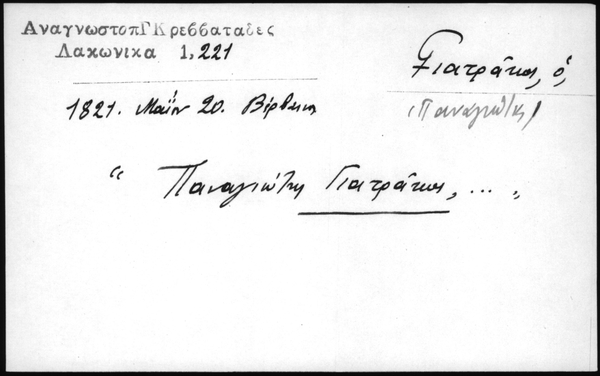 ΑναγνωστοπΓΚρεββαταδες
Λακωνικα 1,221
Γιατράκος, ὁ,
(Παναγιώτης)
1821. Μαΐου 20. Βέρβενα
“ Παναγιώτης Γιατράκος, ... „